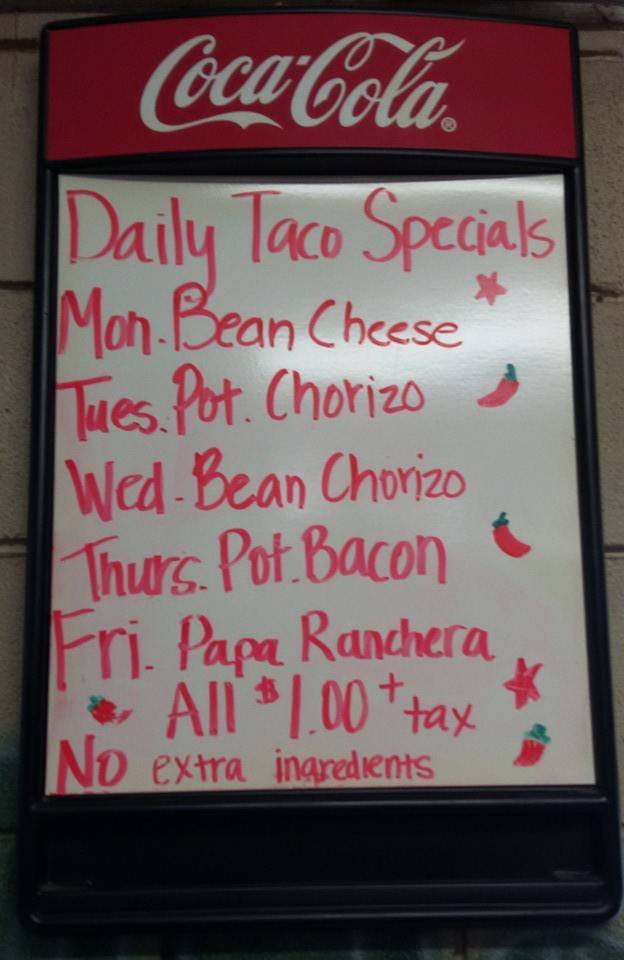 Coca-Cola®
Daily Taco Specials
Mon. Bean Cheese
Tues. Pot. Chorizo
Wed - Bean Chorizo
Thurs. Pot. Bacon
Fri. Papa Ranchera
All $1.00 + tax
No extra ingredients